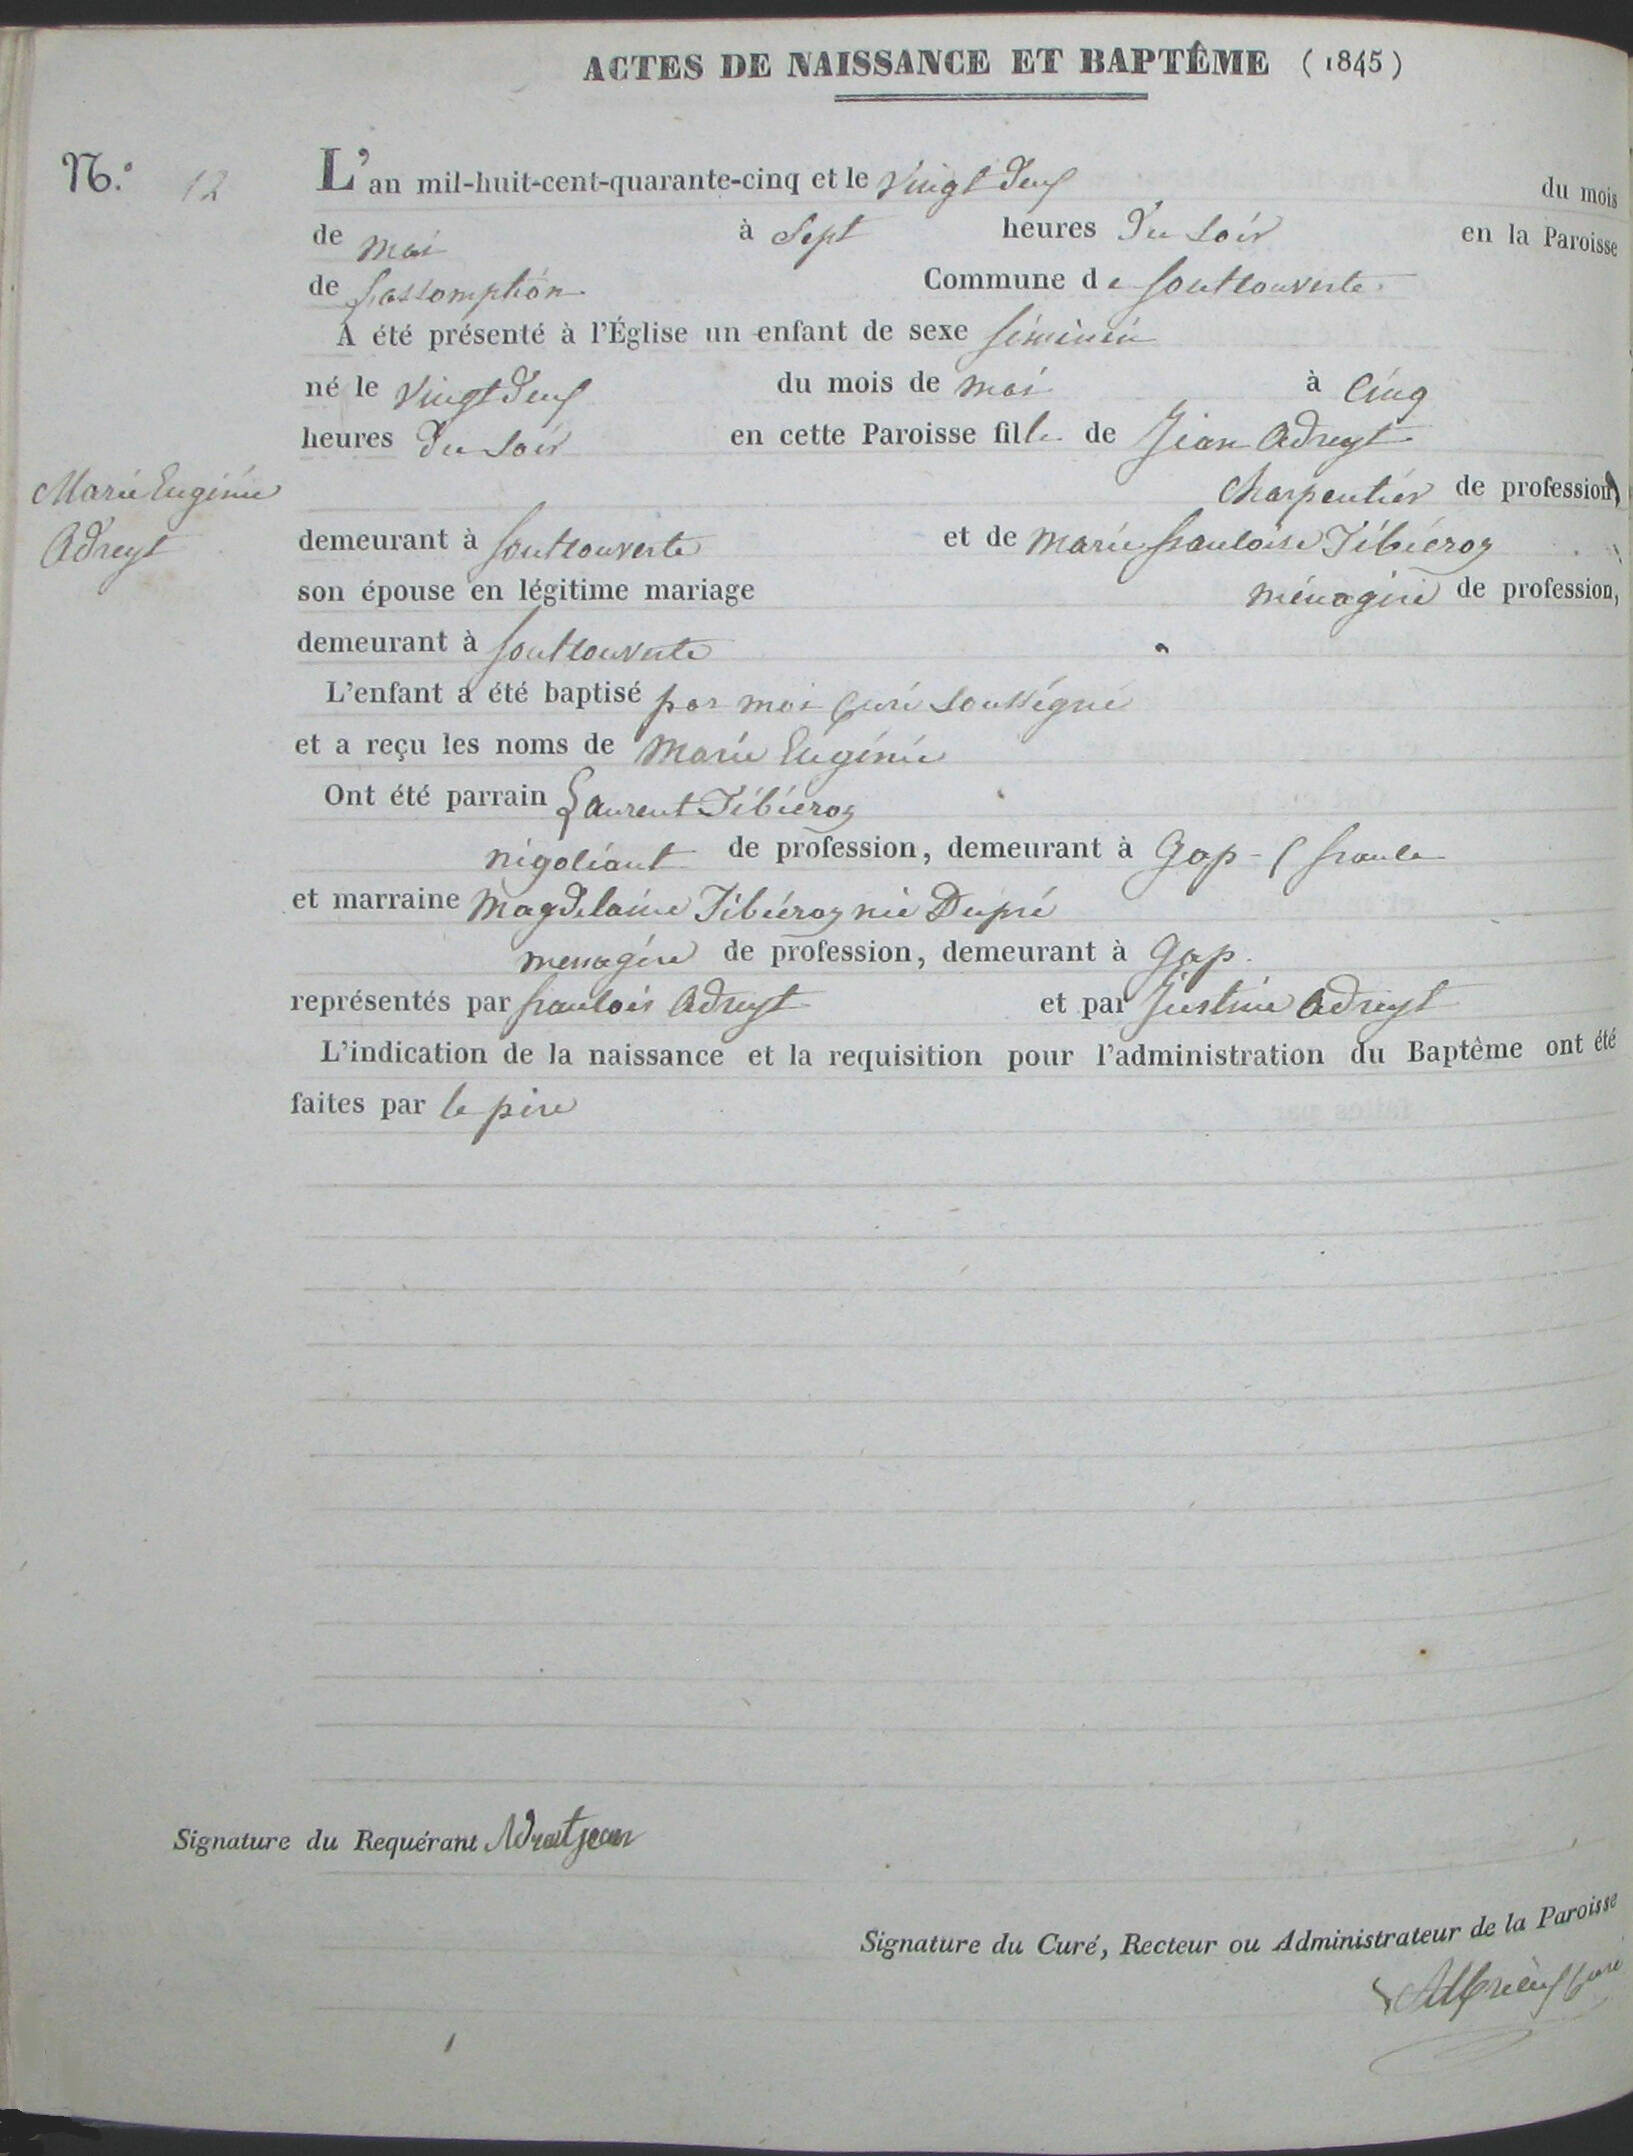 ACTES DE NAISSANCE ET BAPTÊME (1845)
N.° 12
L'an mil-huit-cent-quarante-cinq et le vingt deux du mois
de mai à Sept heures du soir en la Paroisse
de l'assomption Commune de Fontcouverte
A été présenté à l'Église un enfant de sexe féminin
né le vingt deux du mois de mai à Cinq
heures du soir en cette Paroisse fille de Jean Adreyt
Marie Eugénie
charpentier de profession,
Adreyt
demeurant à Fontcouverte et de Marie françoise Tibéroz
son épouse en légitime mariage ménagère de profession,
demeurant à Fontcouverte
L'enfant a été baptisé par moi Curé soussigné
et a reçu les noms de Marie Eugénie
Ont été parrain Laurent Tibéroz
négociant de profession, demeurant à Gap - ( france
et marraine Magdelaine Tibéroz née Dupré
menagère de profession, demeurant à Gap.
représentés par françois Adreyt et par Justine Adreyt
L'indication de la naissance et la requisition pour l'administration du Baptême ont été
faites par le père
Signature du Requérant Adreit jean
Signature du Curé, Recteur ou Administrateur de la Paroisse
Curé